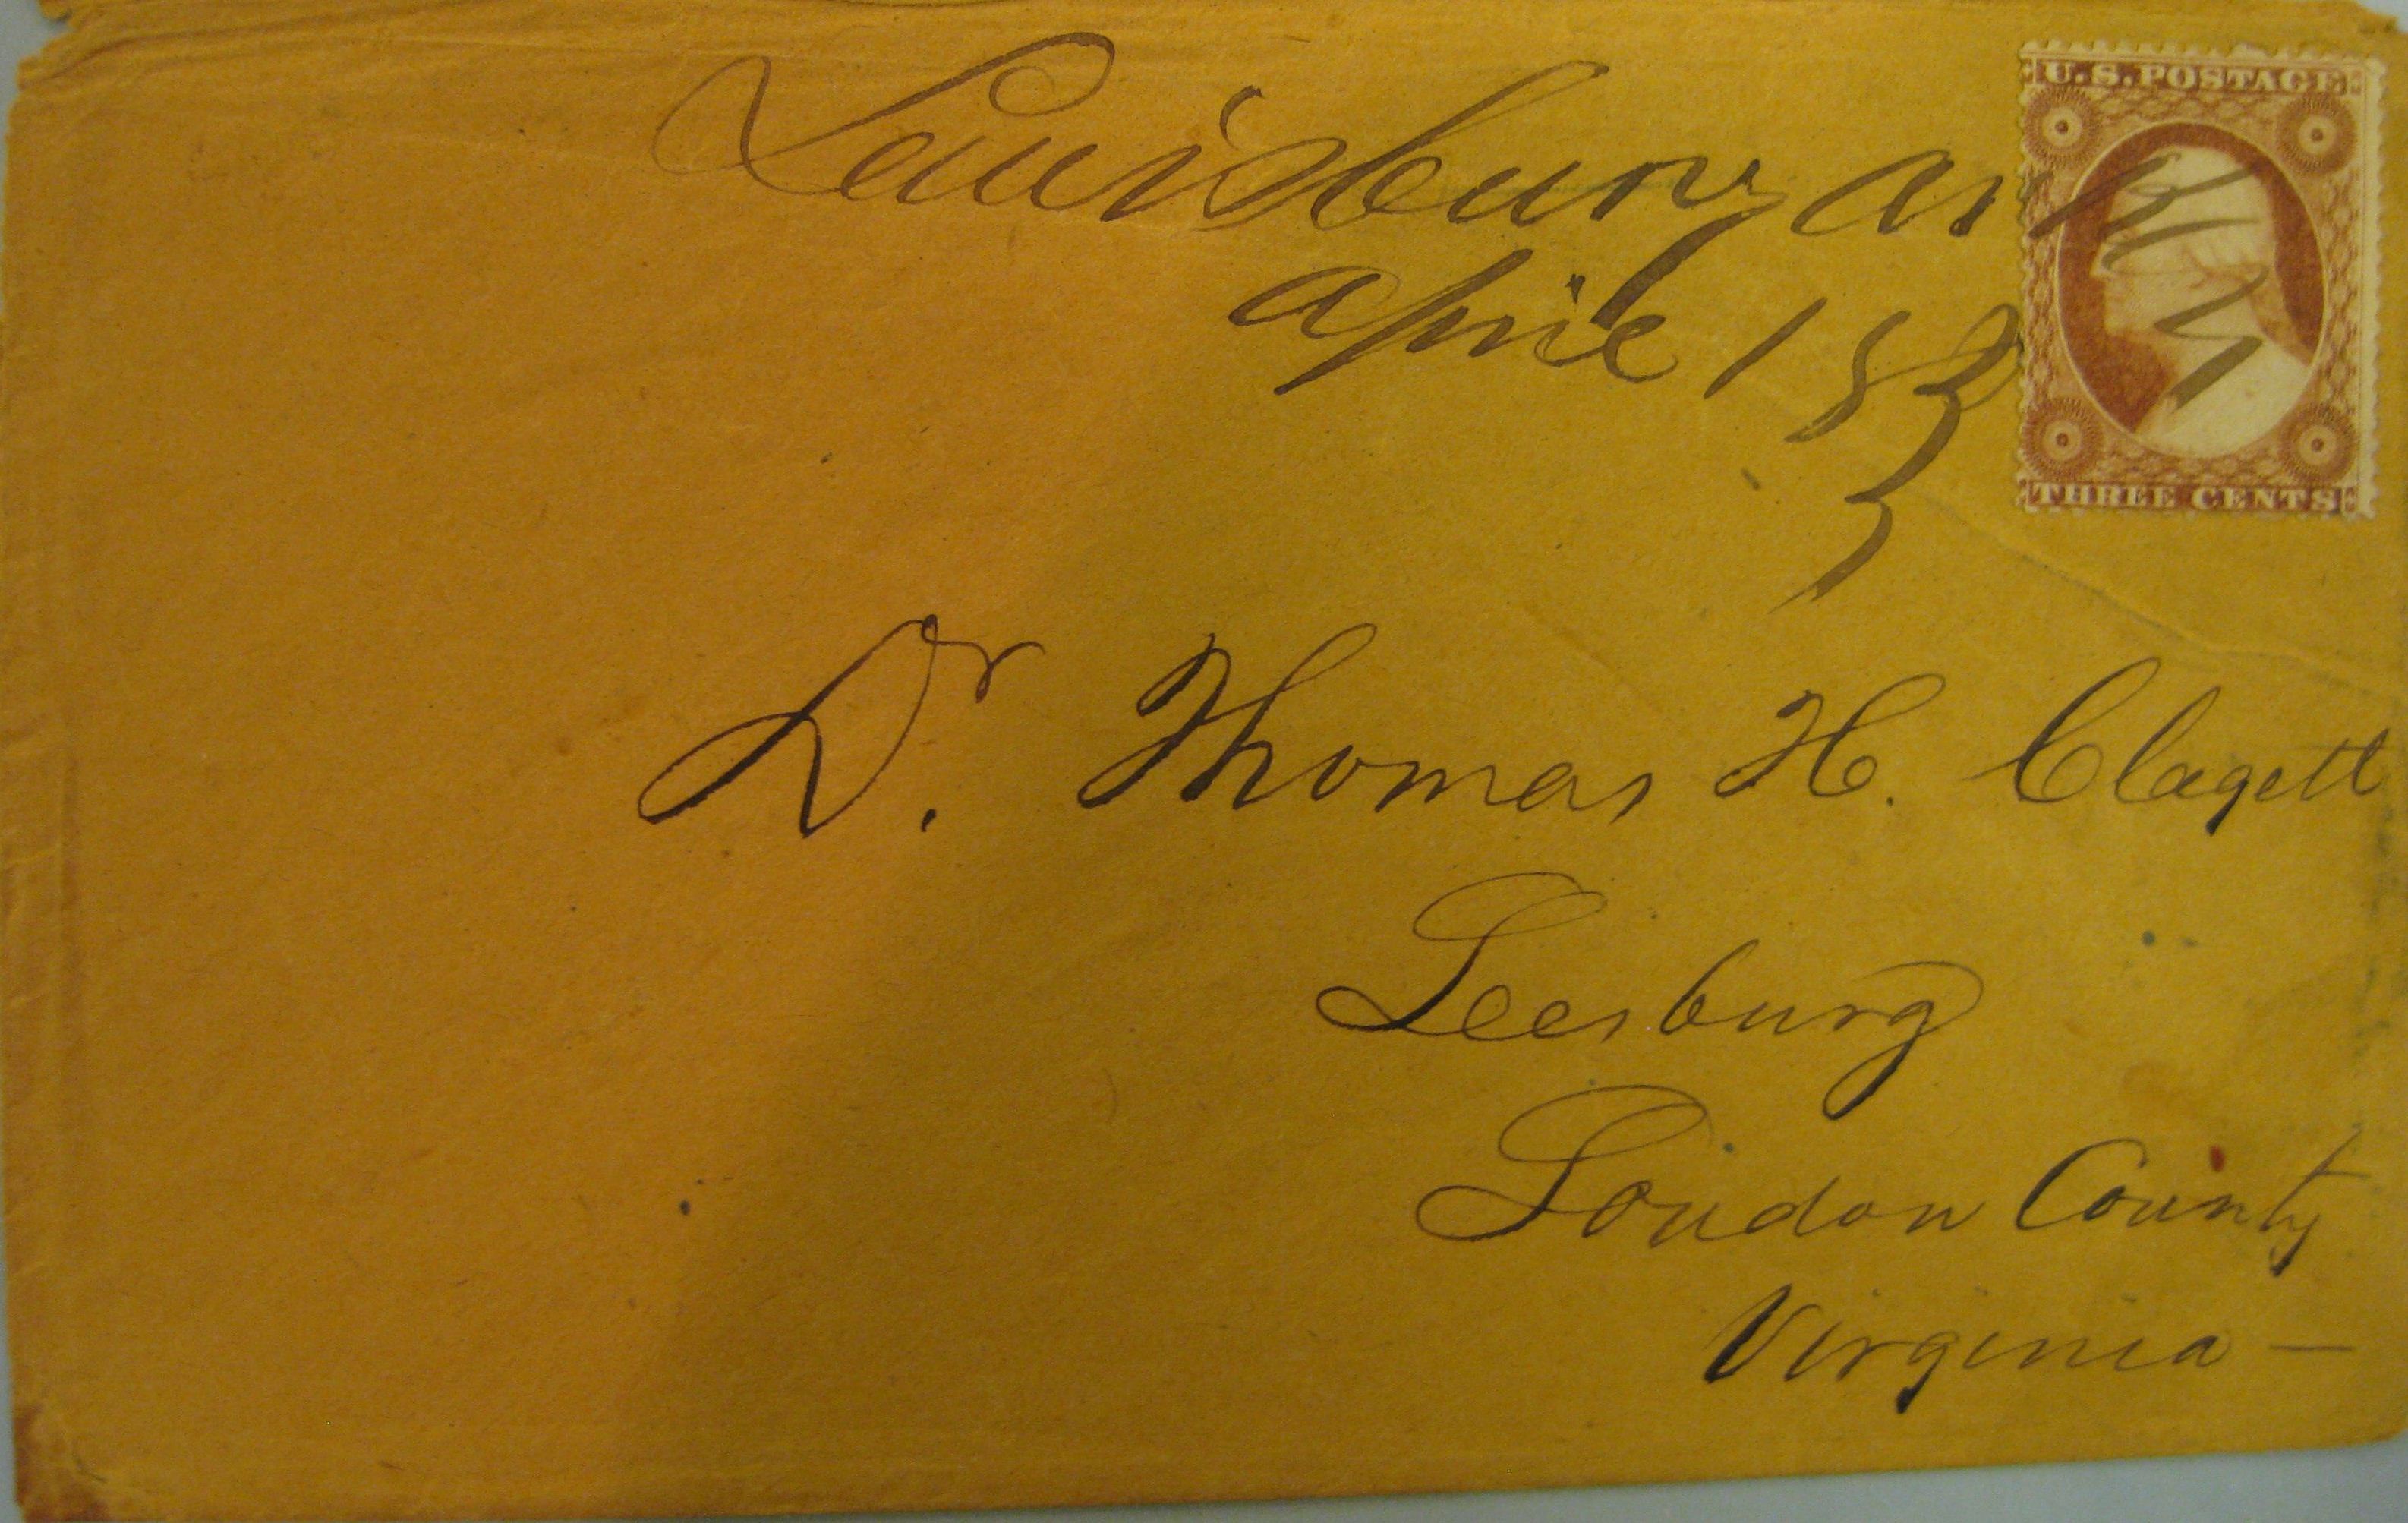 Lewisburg Ark
April 18
Dr. Thomas H. Clagett
Leesburg
Loudon County
Virginia —
U.S. POSTAGE
THREE CENTS